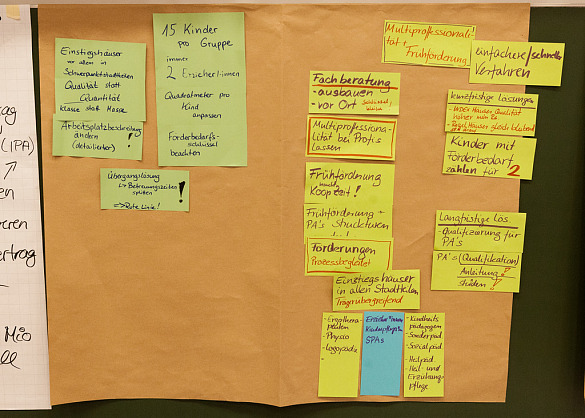 Einstiegshäuser
vor allem in
Schwerpunktstadtteilen
Qualität statt
Quantität
Klasse statt Masse
Arbeitsplatzbeschreibung
ändern !
(detaillierter)
15 Kinder
pro Gruppe
immer
2 Erzieher/innen
Quadratmeter pro
Kind
anpassen
Förderbedarfs-
schlüssel
beachten
Übergangslösung
↳ Betreuungszeiten
splitten !
=> Rote Linie!
Multiprofessionali-
tät + Frühförderung
einfachere/schnellere
Verfahren
Fachberatung
- ausbauen
- vor Ort
Multiprofessiona-
lität bei Profis
Lassen
Frühförderung
Koopzeit!
Frühförderung +
PA's Strukturen
...!
Förderungen
Prozessbegleitet
Einstiegshäuser
in allen Stadtteilen
Trägerübergreifend
kurzfristige Lösungen
Kinder mit
Förderbedarf
zählen für 2
Langfristige Lös.
- Qualifizierung für
PA's
PA's (Qualifikation)
Anleitung!
- Ergothera-
peuten
- Physio
- Logopäd
-
Erzieher*innen
Kinderpfleger*in
SPAs
- Kindheits
pädagogen
- Sonderpäd
- Sozialpäd
- Heilpäd.
- Heil- und
Erziehungs-
pflege
(IPA)
ertrag
Mio